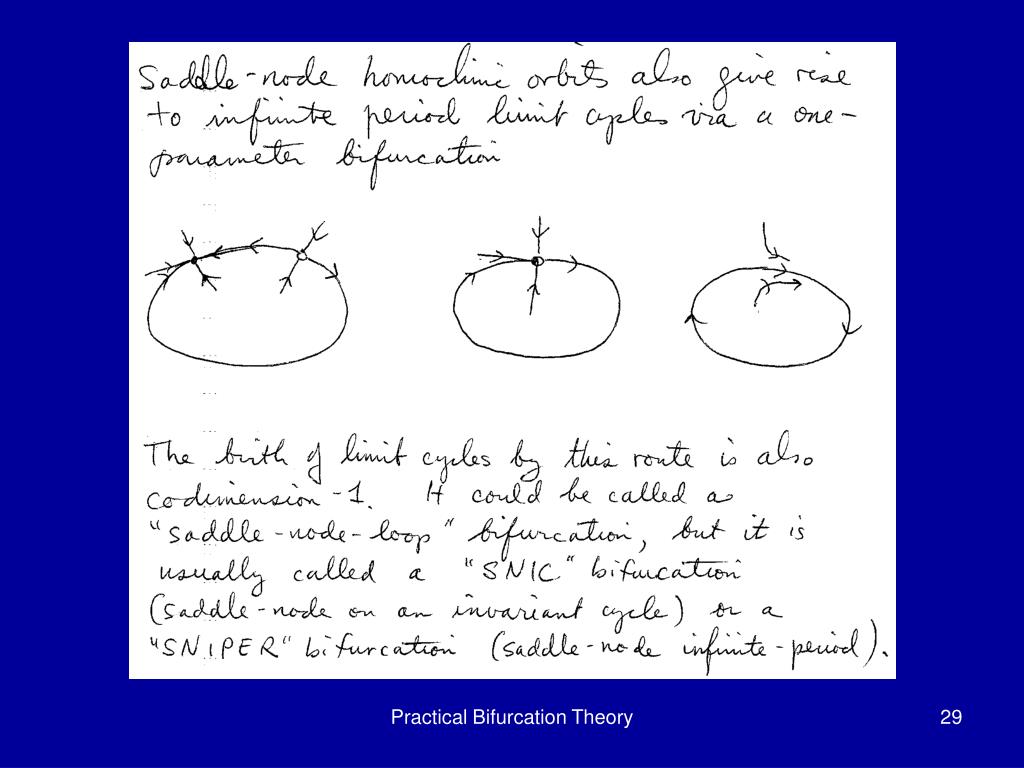 Saddle-node homoclinic orbits also give rise
to infinite period limit cycles via a one-
parameter bifurcation
The birth of limit cycles by this route is also
co-dimension-1. It could be called a
"saddle-node-loop" bifurcation, but it is
usually called a "SNIC" bifucation
(saddle-node on an invariant cycle) or a
"SNIPER" bifurcation (saddle-node infinite-period).
Practical Bifurcation Theory
29